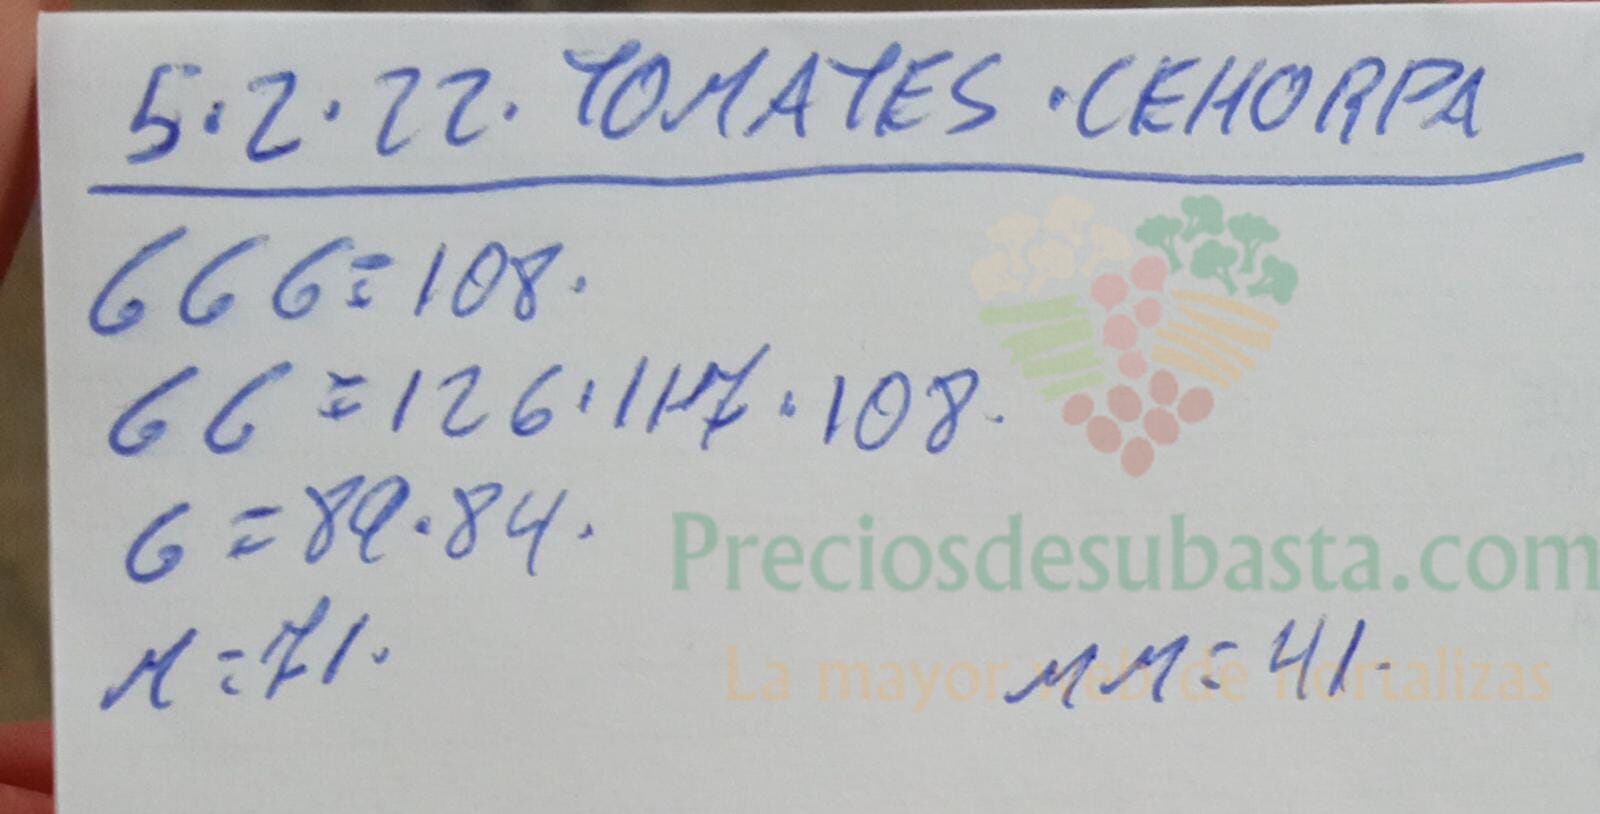 5.2.22. TOMATES .CEHORPA
GGG=108.
GG=126.117.108.
G=89.84.
M=71.
MM=41.
Preciosdesubasta.com
La mayor web de hortalizas